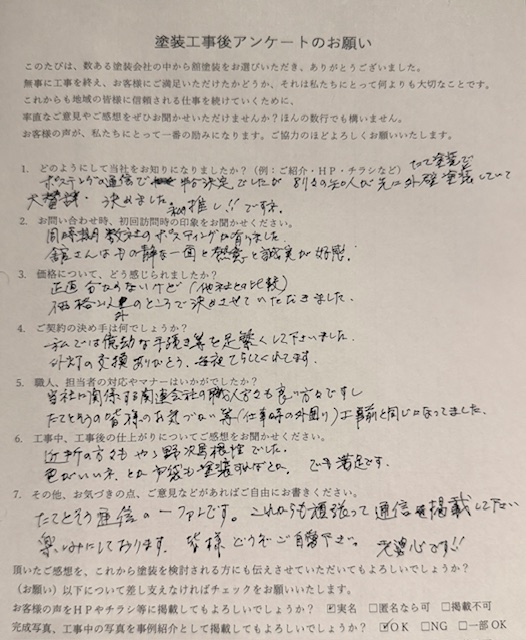 塗装工事後アンケートのお願い
このたびは、数ある塗装会社の中から舘塗装をお選びいただき、ありがとうございました。
無事に工事を終え、お客様にご満足いただけたかどうか、それは私たちにとって何よりも大切なことです。
これからも地域の皆様に信頼される仕事を続けていくために、
率直なご意見やご感想をぜひお聞かせいただけませんか?ほんの数行でも構いません。
お客様の声が、私たちにとって一番の励みになります。ご協力のほどよろしくお願いいたします。
1. どのようにして当社をお知りになりましたか?(例:ご紹介・HP・チラシなど) たて塗装で
ポスティングの通信で 半分決定でしたが 別々の知人が先に外壁塗装していて
大賛辞・決めました。 推し!!ですネ。
2. お問い合わせ時、初回訪問時の印象をお聞かせください。
同時期数社のポスティングが有りました。
舘さんはその静な一面と 誠実が好感。
3. 価格について、どう感じられましたか?
正直分からないけど(他社との比較)
価格以外のところで決めさせていただきました。
4. ご契約の決め手は何でしょうか?
私では億劫な手続き等を足繁くして下さいました。
外灯の交換ありがとう、毎夜てらしてくれてます。
5. 職人、担当者の対応やマナーはいかがでしたか?
当社に関係する関連会社の職人方々も良い方々ですし
たてとそうの皆様のお気づかい等(仕事時の外回り)工事前と同じになってました。
6. 工事中、工事後の仕上がりについてご感想をお聞かせください。
近所の方々もやゝ野次馬根性でした。
色がいいネ、とか 塗装すればとか。でも満足です。
7. その他、お気づきの点、ご意見などがあればご自由にお書きください。
たてとそう通信の一ファンです。これからも頑張って通信を掲載して下さい
楽しみにしております。皆様どうぞご自愛下さい。老婆心です!!
頂いたご感想を、これから塗装を検討される方にも伝えさせていただいてもよろしいでしょうか?
(お願い)以下について差し支えなければチェックをお願いいたします。
お客様の声をHPやチラシ等に掲載してもよろしいでしょうか? ☑実名 □匿名なら可 □掲載不可
完成写真、工事中の写真を事例紹介として掲載してもよろしいでしょうか? ☑OK □NG □一部OK